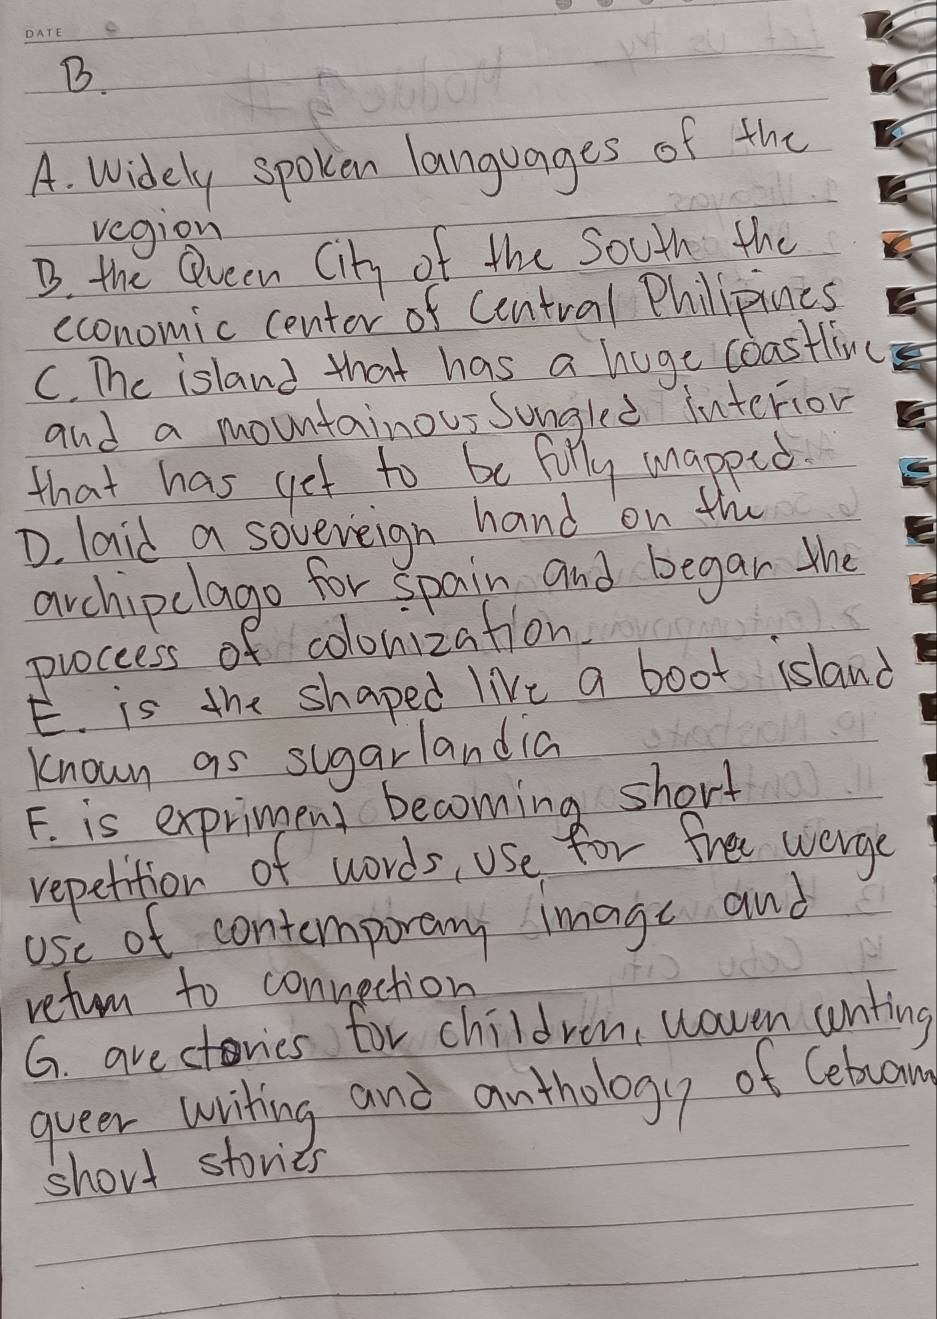 DATE
B.
A. Widely spoken languages of the
region
B. the Queen City of the South the
economic center of Central Philipines
C. The island that has a huge coastline
and a mountainous Jungled interior
that has yet to be fully mapped.
D. laid a sovereign hand on the
archipelago for spain and began the
process of colonization.
E. is the shaped like a boot island
known as sugarlandia
F. is expriment becoming short
repetition of words, use for free werge
use of contemporary image and
return to connection
G. are stories for children, woven
queer writing and anthology of Cebuam
short stories